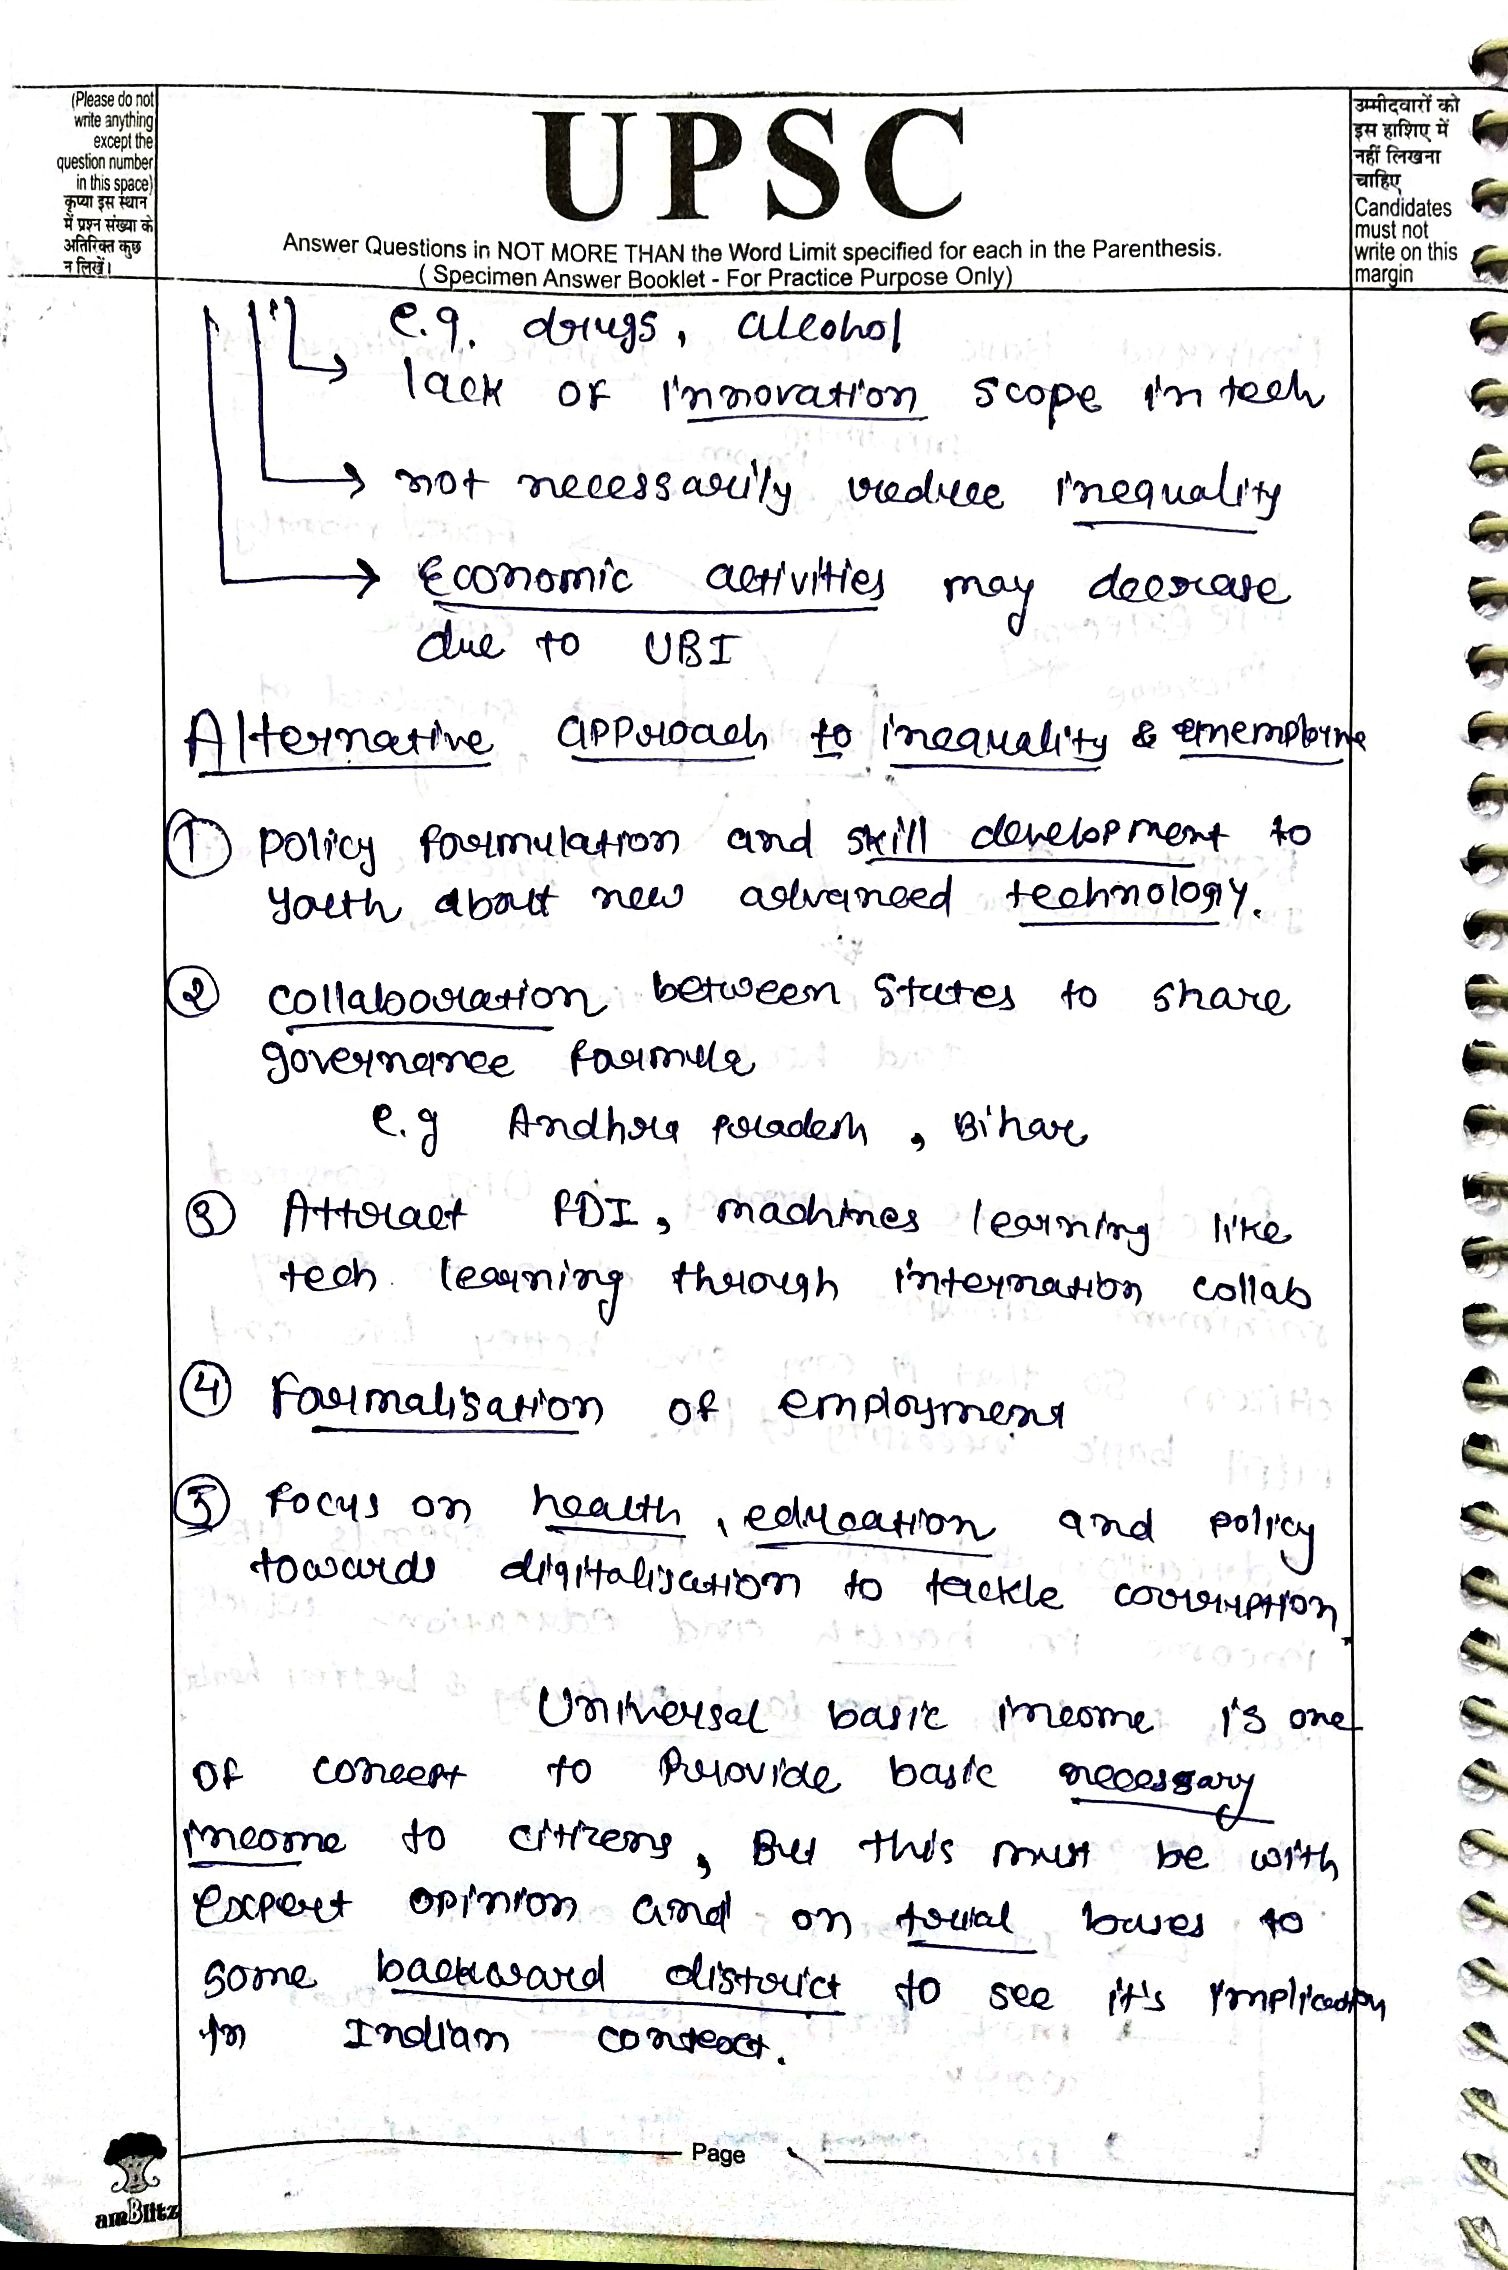 (Please do not
write anything
except the
question number
in this space)
कृप्या इस स्थान
में प्रश्न संख्या के
अतिरिक्त कुछ
न लिखें।
UPSC
Answer Questions in NOT MORE THAN the Word Limit specified for each in the Parenthesis.
( Specimen Answer Booklet - For Practice Purpose Only)
उम्मीदवारों को
इस हाशिए में
नहीं लिखना
चाहिए
Candidates
must not
write on this
margin
e.g. drugs, alcohol
lack of innovation scope in tech
not necessarily reduce inequality
Economic activities may decrease
due to UBI
Alternative approach to inequality & unemployme
1 policy formulation and skill development to
youth about new advanced technology.
2 collaboration between states to share
governance formula
e.g Andhra Pradesh, Bihar
3 Attract FDI, machines learning like
tech learning through internation collab
4 Formalisation of employment
5 focus on health, education and policy
towards digitalisation to tackle corruption.
Universal basic income is one
of concept to Provide basic necessary
income to citizens, But this must be with
expert opinion and on trial bases to
some backward district to see it's implication
in Indian context.
Page
amBlitz